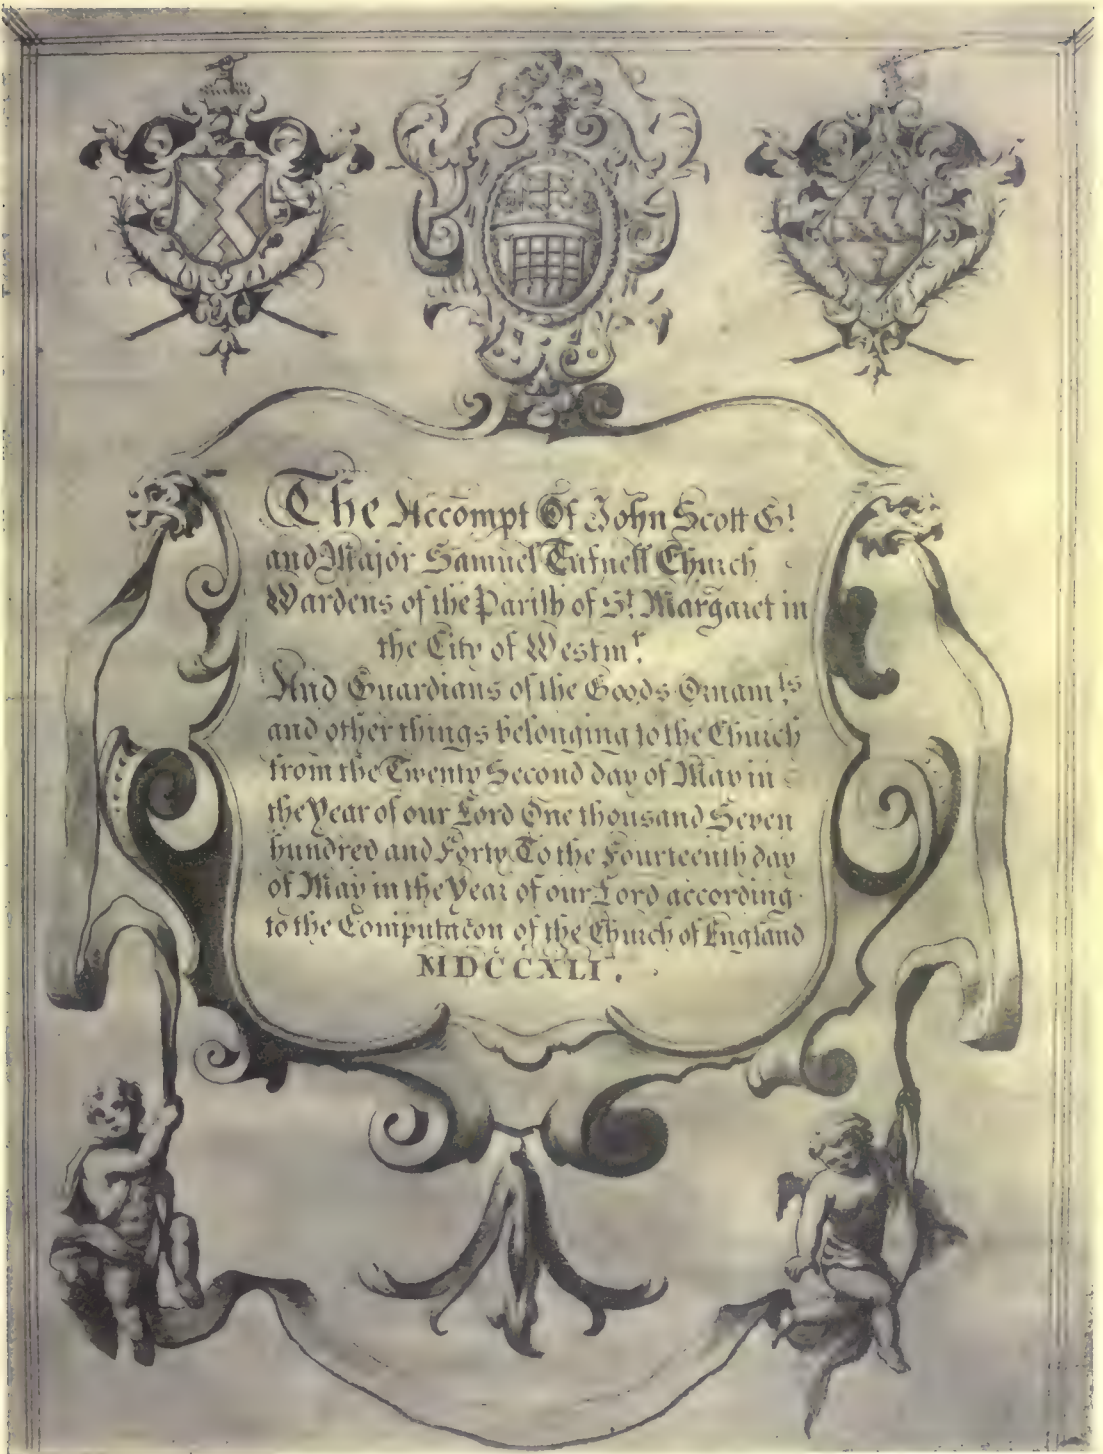 The Accompt Of John Scott G.t
and Major Samuel Tufnell Church
Wardens of the Parish of S.t Margaret in
the City of Westm.r
And Guardians of the Goods Ornam.ts
and other things belonging to the Church
from the Twenty Second day of May in
the Year of our Lord One thousand Seven
hundred and Forty To the Fourteenth day
of May in the Year of our Lord according
to the Computacon of the Church of England
MDCCXLI.